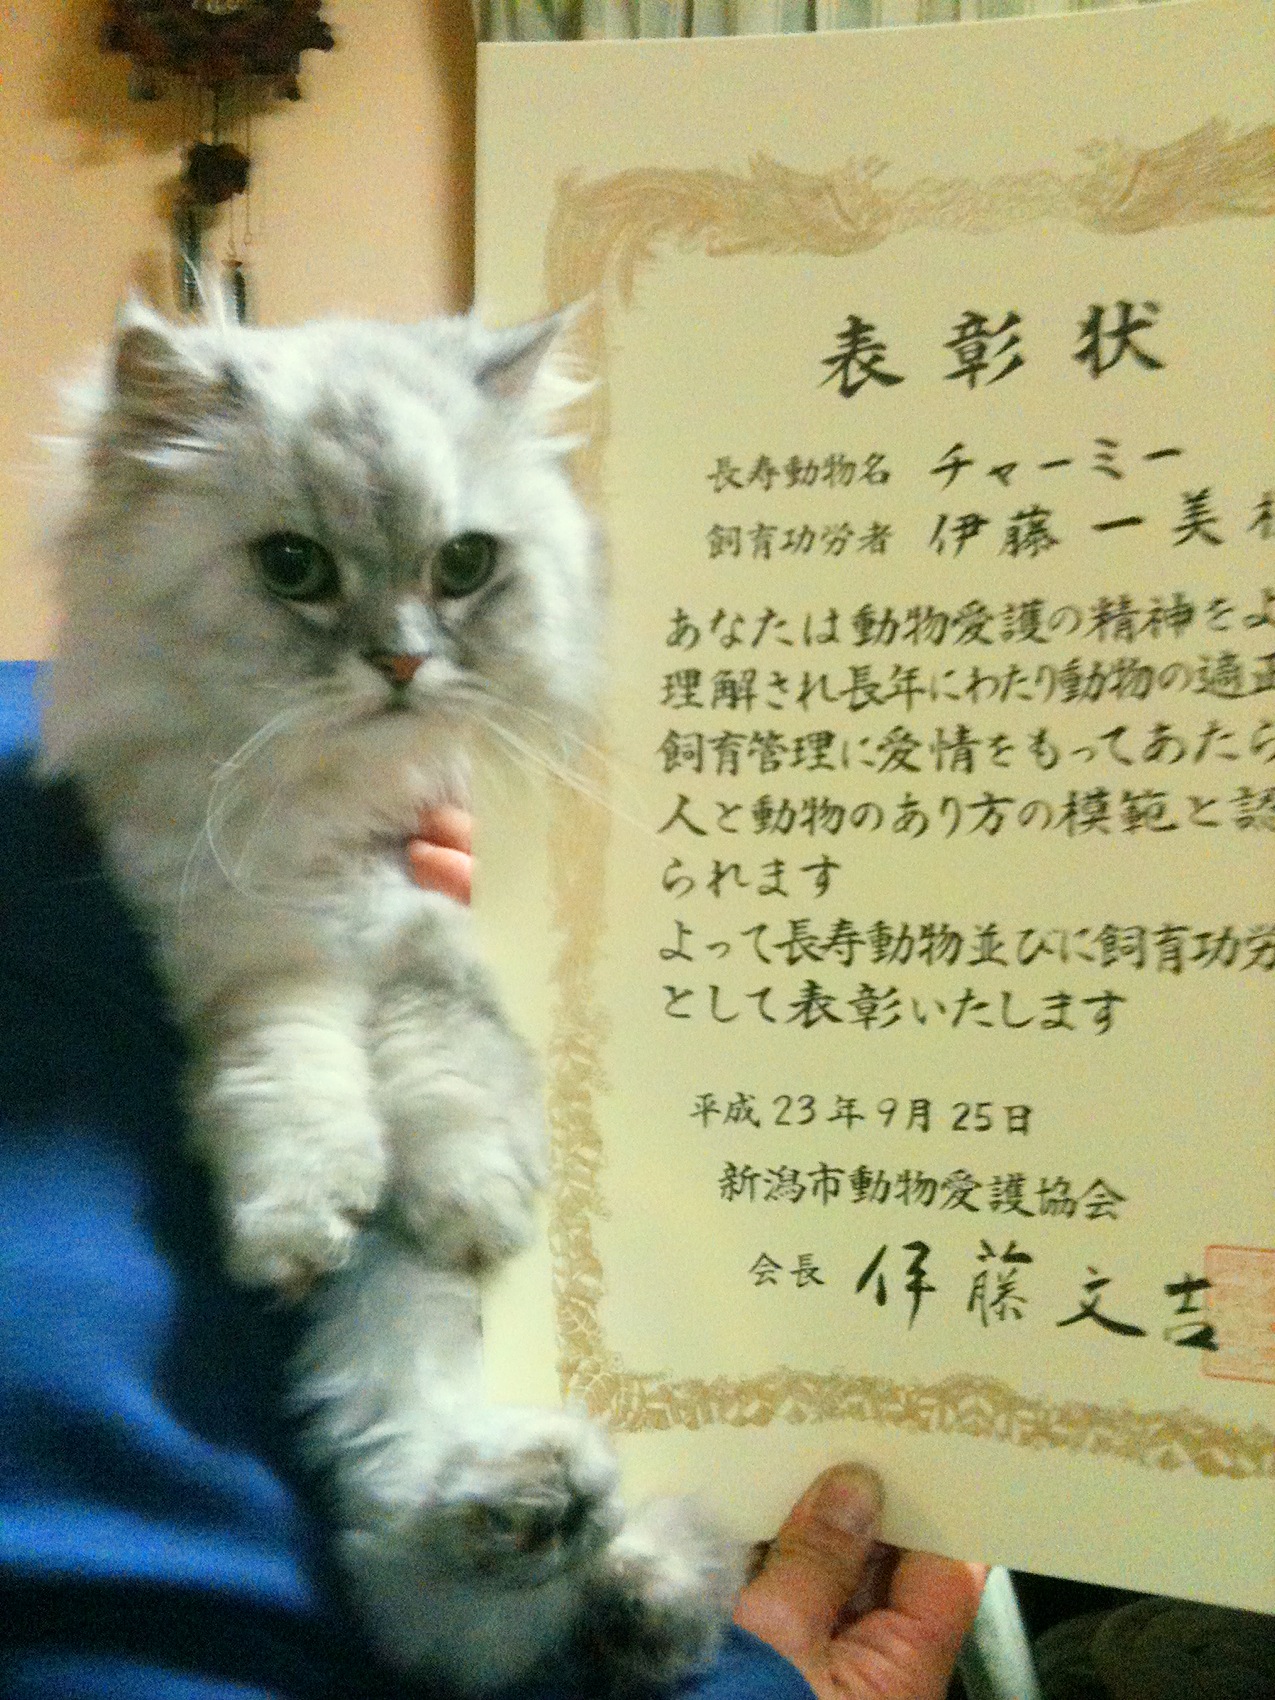 表彰状
長寿動物名 チャーミー
飼育功労者 伊藤一美
あなたは動物愛護の精神をよ
理解され長年にわたり動物の適正
飼育管理に愛情をもってあたら
人と動物のあり方の模範と認
られます
よって長寿動物並びに飼育功労
として表彰いたします
平成23年9月25日
新潟市動物愛護協会
会長 伊藤文吉